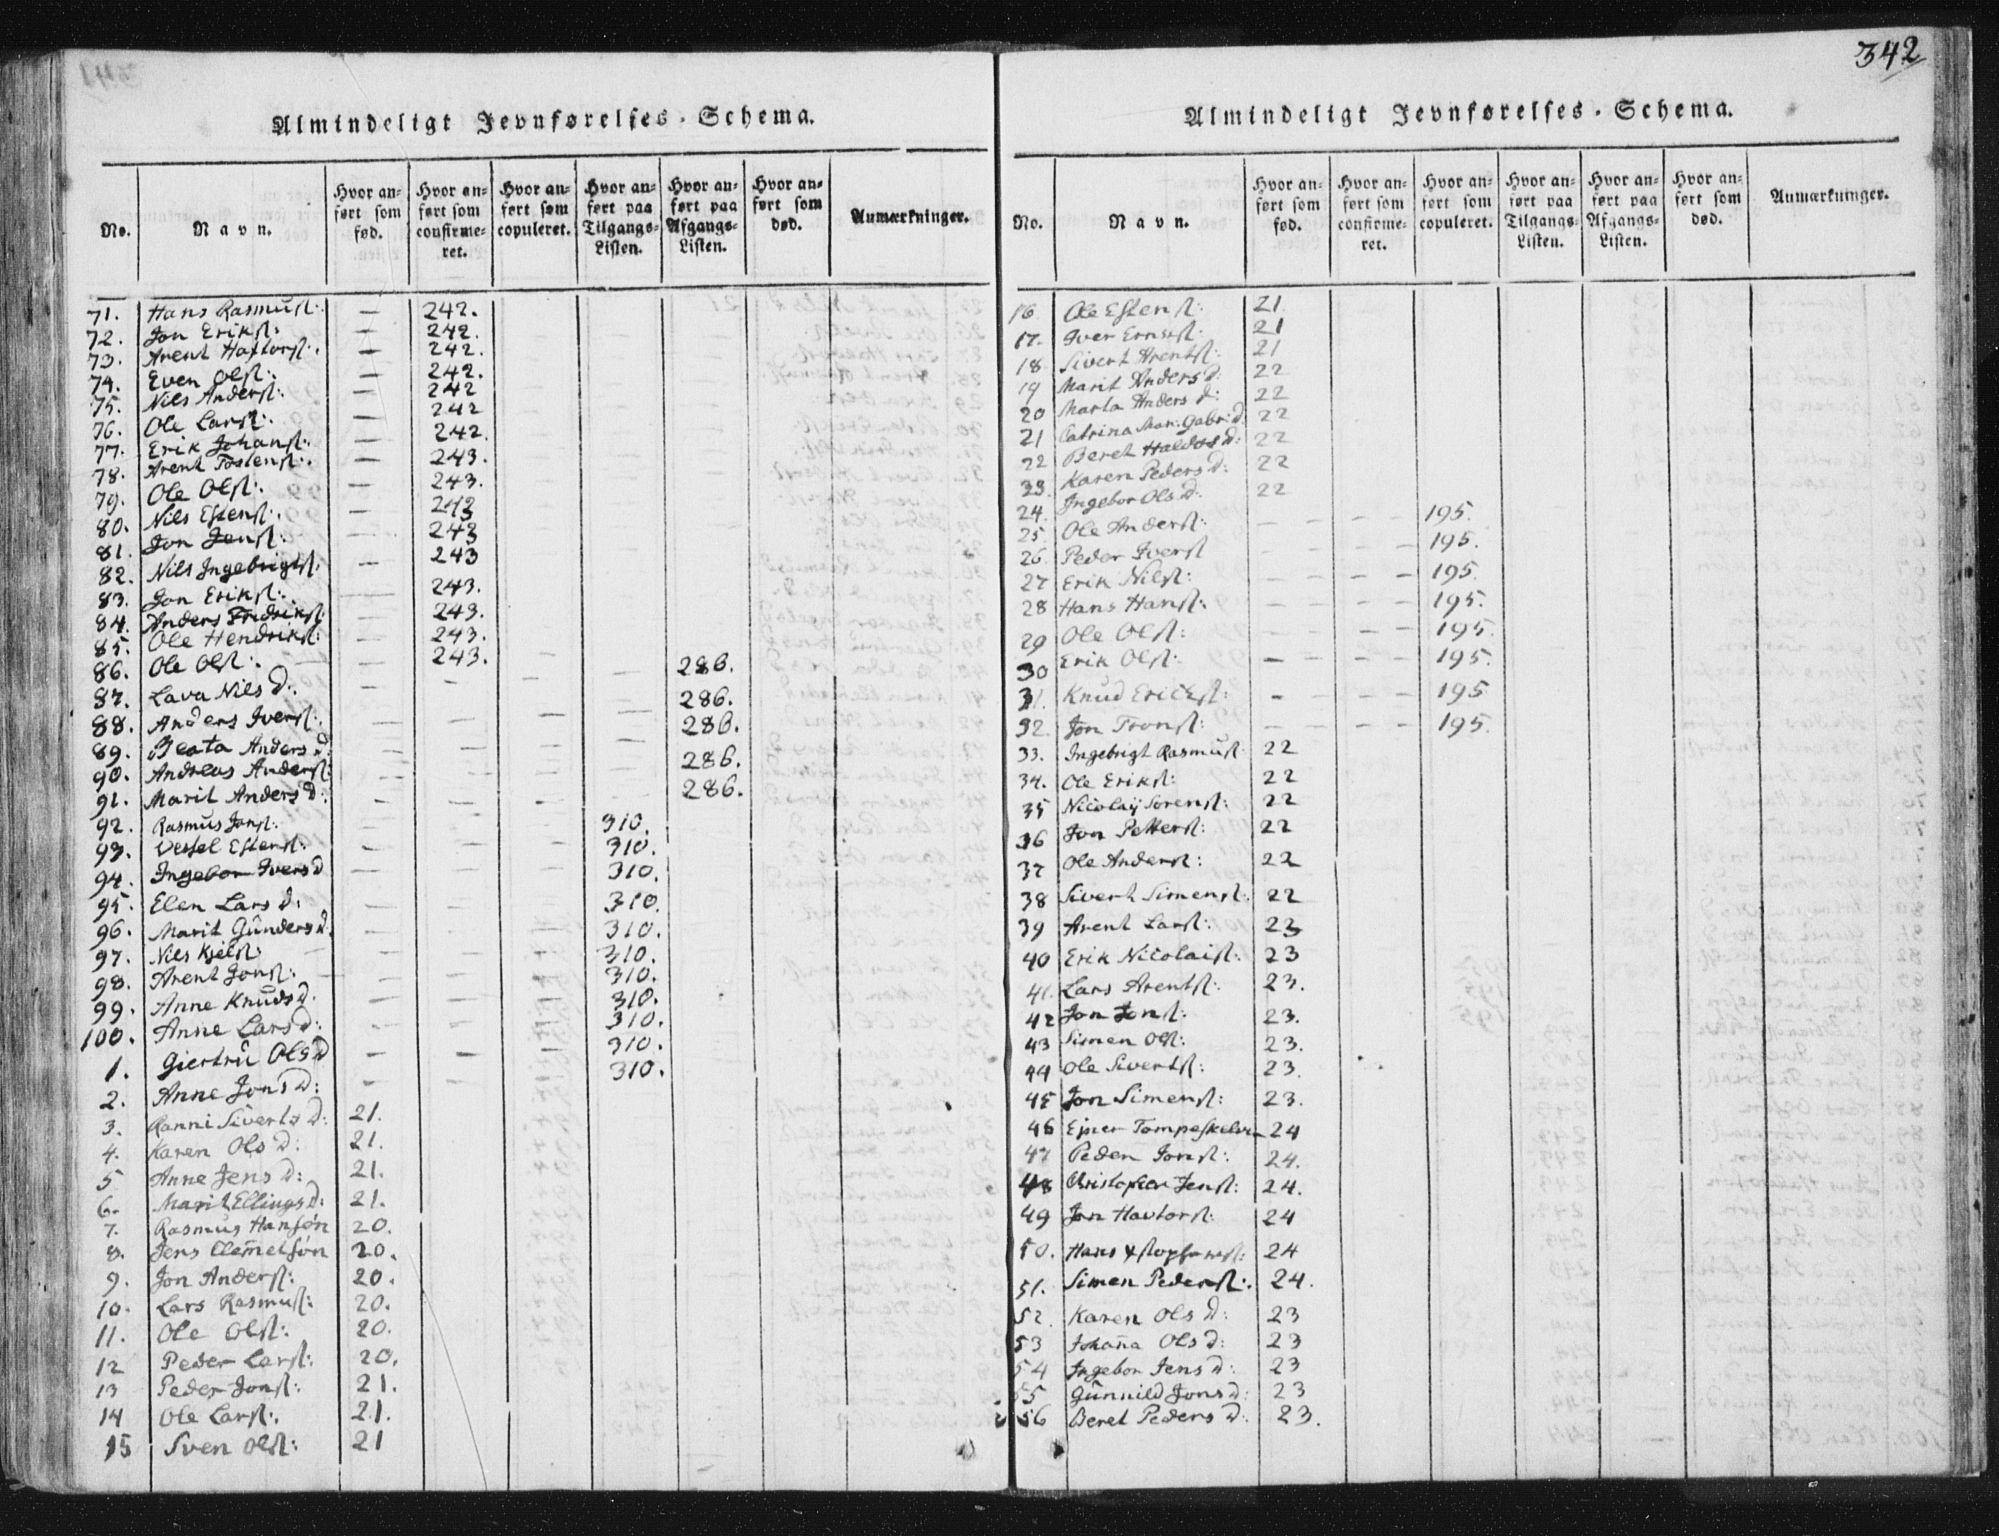 342
Almindeligt Jevnførelses-Schema.
No. Navn. Hvor anført som fød. Hvor anført som confirmeret. Hvor anført som copuleret. Hvor anført paa Tilgangs-Listen. Hvor anført paa Afgangs-Listen. Hvor anført som død. Anmærkninger.
71. Hans Rasmusſt: — 242.
72. Jon Erikſt: — 242.
73. Arent Haftorſt: — 242.
74. Even Olſt: — 242.
75. Nils Anderſt: — 242
76. Ole Larſt: — 242
77. Erik Johanſt: — 242.
78. Arent Tostenſt: — 243.
79. Ole Olſt: — 243.
80. Nils Estenſt: — 243
81. Jon Jonſt: — 243
82. Nils Ingebrigtſt: — 243
83. Jon Erikſt: — 243.
84. Anders Fredrikſt: — 243.
85. Ole Hendrikſt: — 243.
86. Ole Olſt: — 243.
87. Lava Nils D: — — — — 286.
88. Anders Iverſt: — — — — 286.
89. Beata Anders D: — — — — 286.
90. Andreas Anderſt: — — — — 286.
91. Marit Anders D: — — — — 286.
92. Rasmus Jonſt: — — — 310.
93. Vessel Estenſt: — — — 310.
94. Ingebor Ivers D — — — 310.
95. Elen Lars D: — — — 310.
96. Marit Gunders D. — — — 310.
97. Nils Kjelſt: — — — 310.
98. Arent Jonſt: — — — 310.
99. Anne Knuds D. — — — 310.
100. Anne Lars D: — — — 310.
1. Giertru Ols D — — — 310.
2. Anne Jons D: — — — 310.
3. Ranni Siverts D: 21.
4. Karen Ols D: 21.
5 Anne Jens D: 21.
6. Marit Ellings D: 21.
7. Rasmus Hansøn 20.
8. Jens Clemetsøn 20.
9. Jon Anderſt: 20.
10. Lars Rasmuſt: 20.
11. Ole Olſt: 20.
12 Peder Larſt: 20.
13 Peder Jonſt: 21.
14 Ole Larſt: 21.
15 Sven Olſt: 21
Almindeligt Jevnførelses-Schema.
No. Navn. Hvor anført som fød. Hvor anført som confirmeret. Hvor anført som copuleret. Hvor anført paa Tilgangs-Listen. Hvor anført paa Afgangs-Listen. Hvor anført som død. Anmærkninger.
16 Ole Estenſt: 21
17. Iver Ernstſt: 21
18 Sivert Arentſt: 21
19 Marit Anders D: 22
20 Marta Anders D: 22
21 Catrina Mar: Gabr: D 22
22 Beret Haldos D: 22
23. Karen Peders D: 22
24. Ingebor Ols D: 22
25 Ole Anderſt: — — — — 195.
26 Peder Iverſt — — — — 195.
27 Erik Nilſt: — — — — 195.
28 Hans Hanſt: — — — — 195.
29 Ole Olſt: — — — — 195.
30 Erik Olſt: — — — — 195.
31. Knud Erickſt: — — — — 195
32. Jon Tronſt: — — — — 195.
33. Ingebrigt Rasmuſt. 22
34. Ole Erikſt: 22
35 Nicolaij Sorenſt: 22
36 Jon Petterſt: 22
37 Ole Anderſt: 22
38 Sivert Simenſt: 22
39 Arent Larſt: 23
40 Erik Nicolaiſt: 23
41. Lars Arentſt: 23.
42 Jon Jonſt: 23.
43 Simen Olſt: 23.
44 Ole Sivertſt: 23.
45 Jon Simenſt: 23.
46 Ejner Tompeskelver 24
47 Peder Jonſt: 24.
48 Christopher Jenſt: 24.
49 Jon Havtorſt: 24
50. Hans 24
51. Simen Pederſt: 24.
52. Karen Ols D: 23
53 Johaña Ols D: 23
54 Ingebor Jens D: 23
55 Gunnild Jons D: 23
56 Beret Peders D: 23.